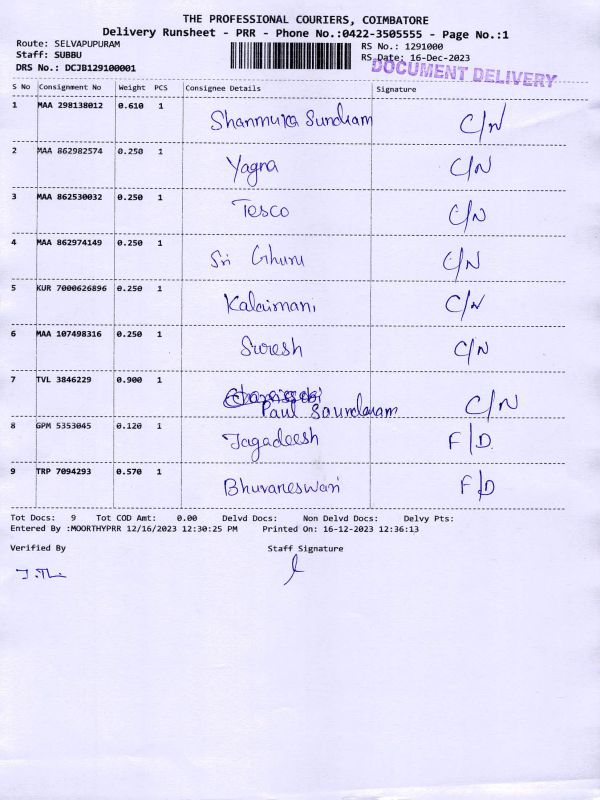 THE PROFESSIONAL COURIERS, COIMBATORE
Delivery Runsheet - PRR - Phone No.:0422-3505555 - Page No.:1
Route: SELVAPUPURAM
RS No.: 1291000
Staff: SUBBU
RS Date: 16-Dec-2023
DRS No.: DCJB129100001
DOCUMENT DELIVERY
S No Consignment No Weight PCS Consignee Details Signature
1 MAA 298138012 0.610 1 Shanmuga Sundram C/N
2 MAA 862982574 0.250 1 Yagna C/N
3 MAA 862530032 0.250 1 Tesco C/N
4 MAA 862974149 0.250 1 Sri Ghuru C/N
5 KUR 7000626896 0.250 1 Kalaimani C/N
6 MAA 107498316 0.250 1 Suresh C/N
7 TVL 3846229 0.900 1 Paul Soundaram C/N
8 GPM 5353045 0.120 1 Jagadeesh F/D
9 TRP 7094293 0.570 1 Bhuvaneswari F/D
Tot Docs: 9 Tot COD Amt: 0.00 Delvd Docs: Non Delvd Docs: Delvy Pts:
Entered By :MOORTHYPRR 12/16/2023 12:30:25 PM Printed On: 16-12-2023 12:36:13
Verified By Staff Signature